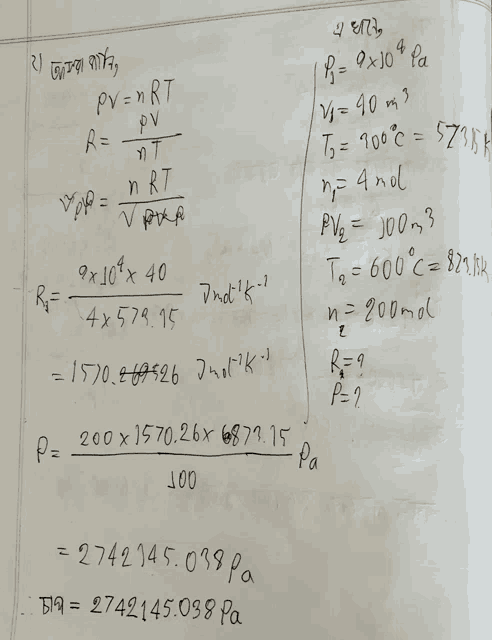 ২) আমরা জানি,
PV = nRT
R = PV / nT
P = nRT / V
R₁ = 9×10⁴×40 / 4×573.15 Jmol⁻¹K⁻¹
= 1570.26 Jmol⁻¹K⁻¹
P = 200×1570.26×873.15 / 100 Pa
= 2742145.038 Pa
চাপ = 2742145.038 Pa
এখানে,
P₁ = 9×10⁴ Pa
V₁ = 40 m³
= 300°C = 573.15K
n₁ = 4 mol
V₂ = 100 m³
T₂ = 600°C = 873.15K
n₂ = 200 mol
R = ?
P = ?